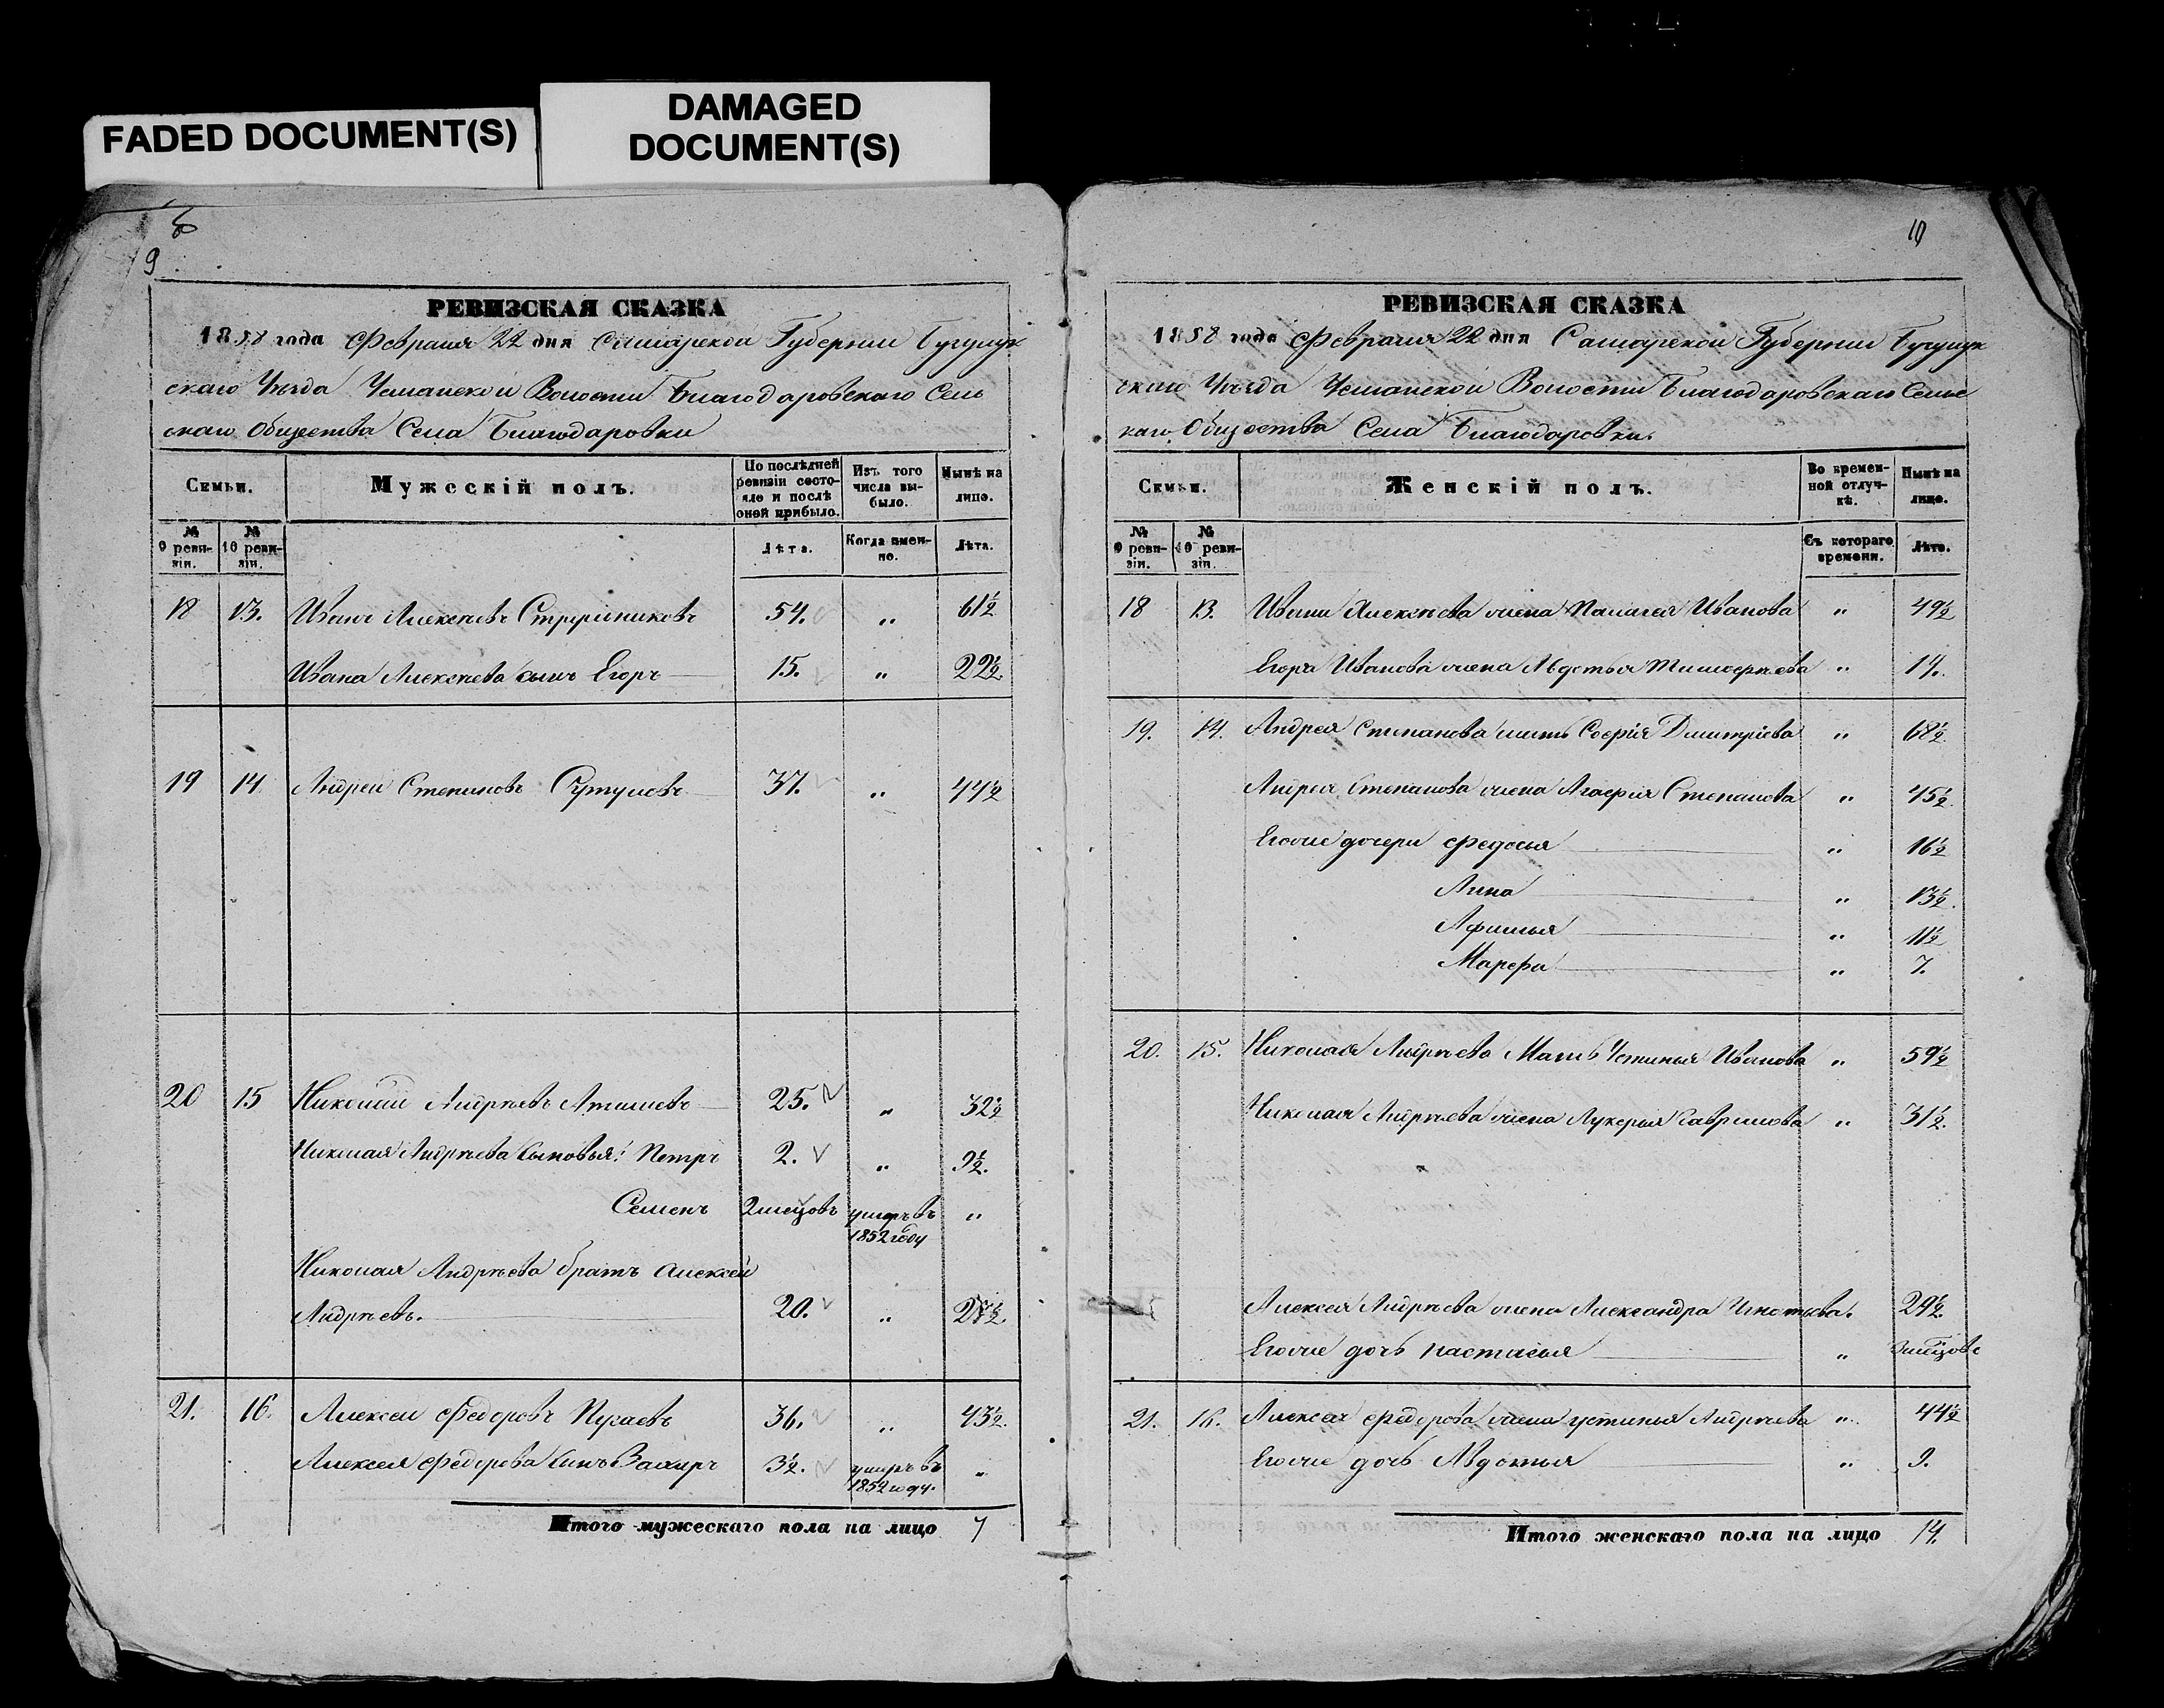 FADED DOCUMENT(S)
DAMAGED
DOCUMENT(S)
9
РЕВИЗСКАЯ СКАЗКА
1858 года Февраля 22 дня Самарской Губернии Бугурус
скаго Уѣзда Усманской Волости Благодаровскаго Сель
скаго Общества Села Благодаровки
Семьи.
Мужескій полъ.
По послѣдней ревизіи состояло и послѣ оной прибыло.
Изъ того числа выбыло.
Нынѣ на лицо.
№ 9 ревизіи.
№ 10 ревизіи.
Лѣта.
Когда именно.
Лѣта.
18 13. Иванъ Алексѣевъ 54. „ 61½
Ивана Алексѣева сынъ Егоръ 15. „ 22½
19 14 Андрей Степановъ Сутуловъ 37. „ 44½
20 15 Николай Андрѣевъ 25. „ 32½
Николая Андрѣева сыновья: Петръ 2. „ 9½.
Семенъ 2 мѣцовъ умеръ въ „
1852 году
Николая Андрѣева братъ Алексей
Андрѣевъ. 20. „ 27½.
21. 16. Алексей Федоровъ 36. „ 43½.
Алексея Федорова сынъ 3½. умеръ въ „
1852 году.
Итого мужескаго пола на лицо 7
10
РЕВИЗСКАЯ СКАЗКА
1858 года Февраля 22 дня Самарской Губерніи Бугурус
скаго Уѣзда Усманской Волости Благодаровскаго Сельс
каго Общества Села Благодаровки
Семьи.
Женскій полъ.
Во временной отлучкѣ.
Нынѣ на лицо.
№ 9 ревизіи.
№ 10 ревизіи.
Съ котораго времени.
Лѣта.
18 13. Ивана Алексѣева жена Палагея Иванова „ 49½
Егора Иванова жена Авдотья Тимофеева „ 19.
19. 14. Андрея Степанова мать Софія Дмитріева „ 68½
Андрея Степанова жена Агафія Степанова „ 45½.
Егожe дочери Федосья „ 16½
Анна „ 13½.
Афимья „ 11½
Марфа „ 7.
20. 15. Николая Андрѣева Мать Устинья Иванова „ 59½
Николая Андрѣева жена Лукерья Гаврилова „ 31½.
Алексея Андрѣева жена Александра Игнатьева. 29½.
Егоже дочь Настасья „ 3 мѣцовъ
21. 16. Алексея Федорова жена Устинья Андрѣева „ 44½
Егоже дочь Авдотья „ 9.
Итого женскаго пола на лицо 14.